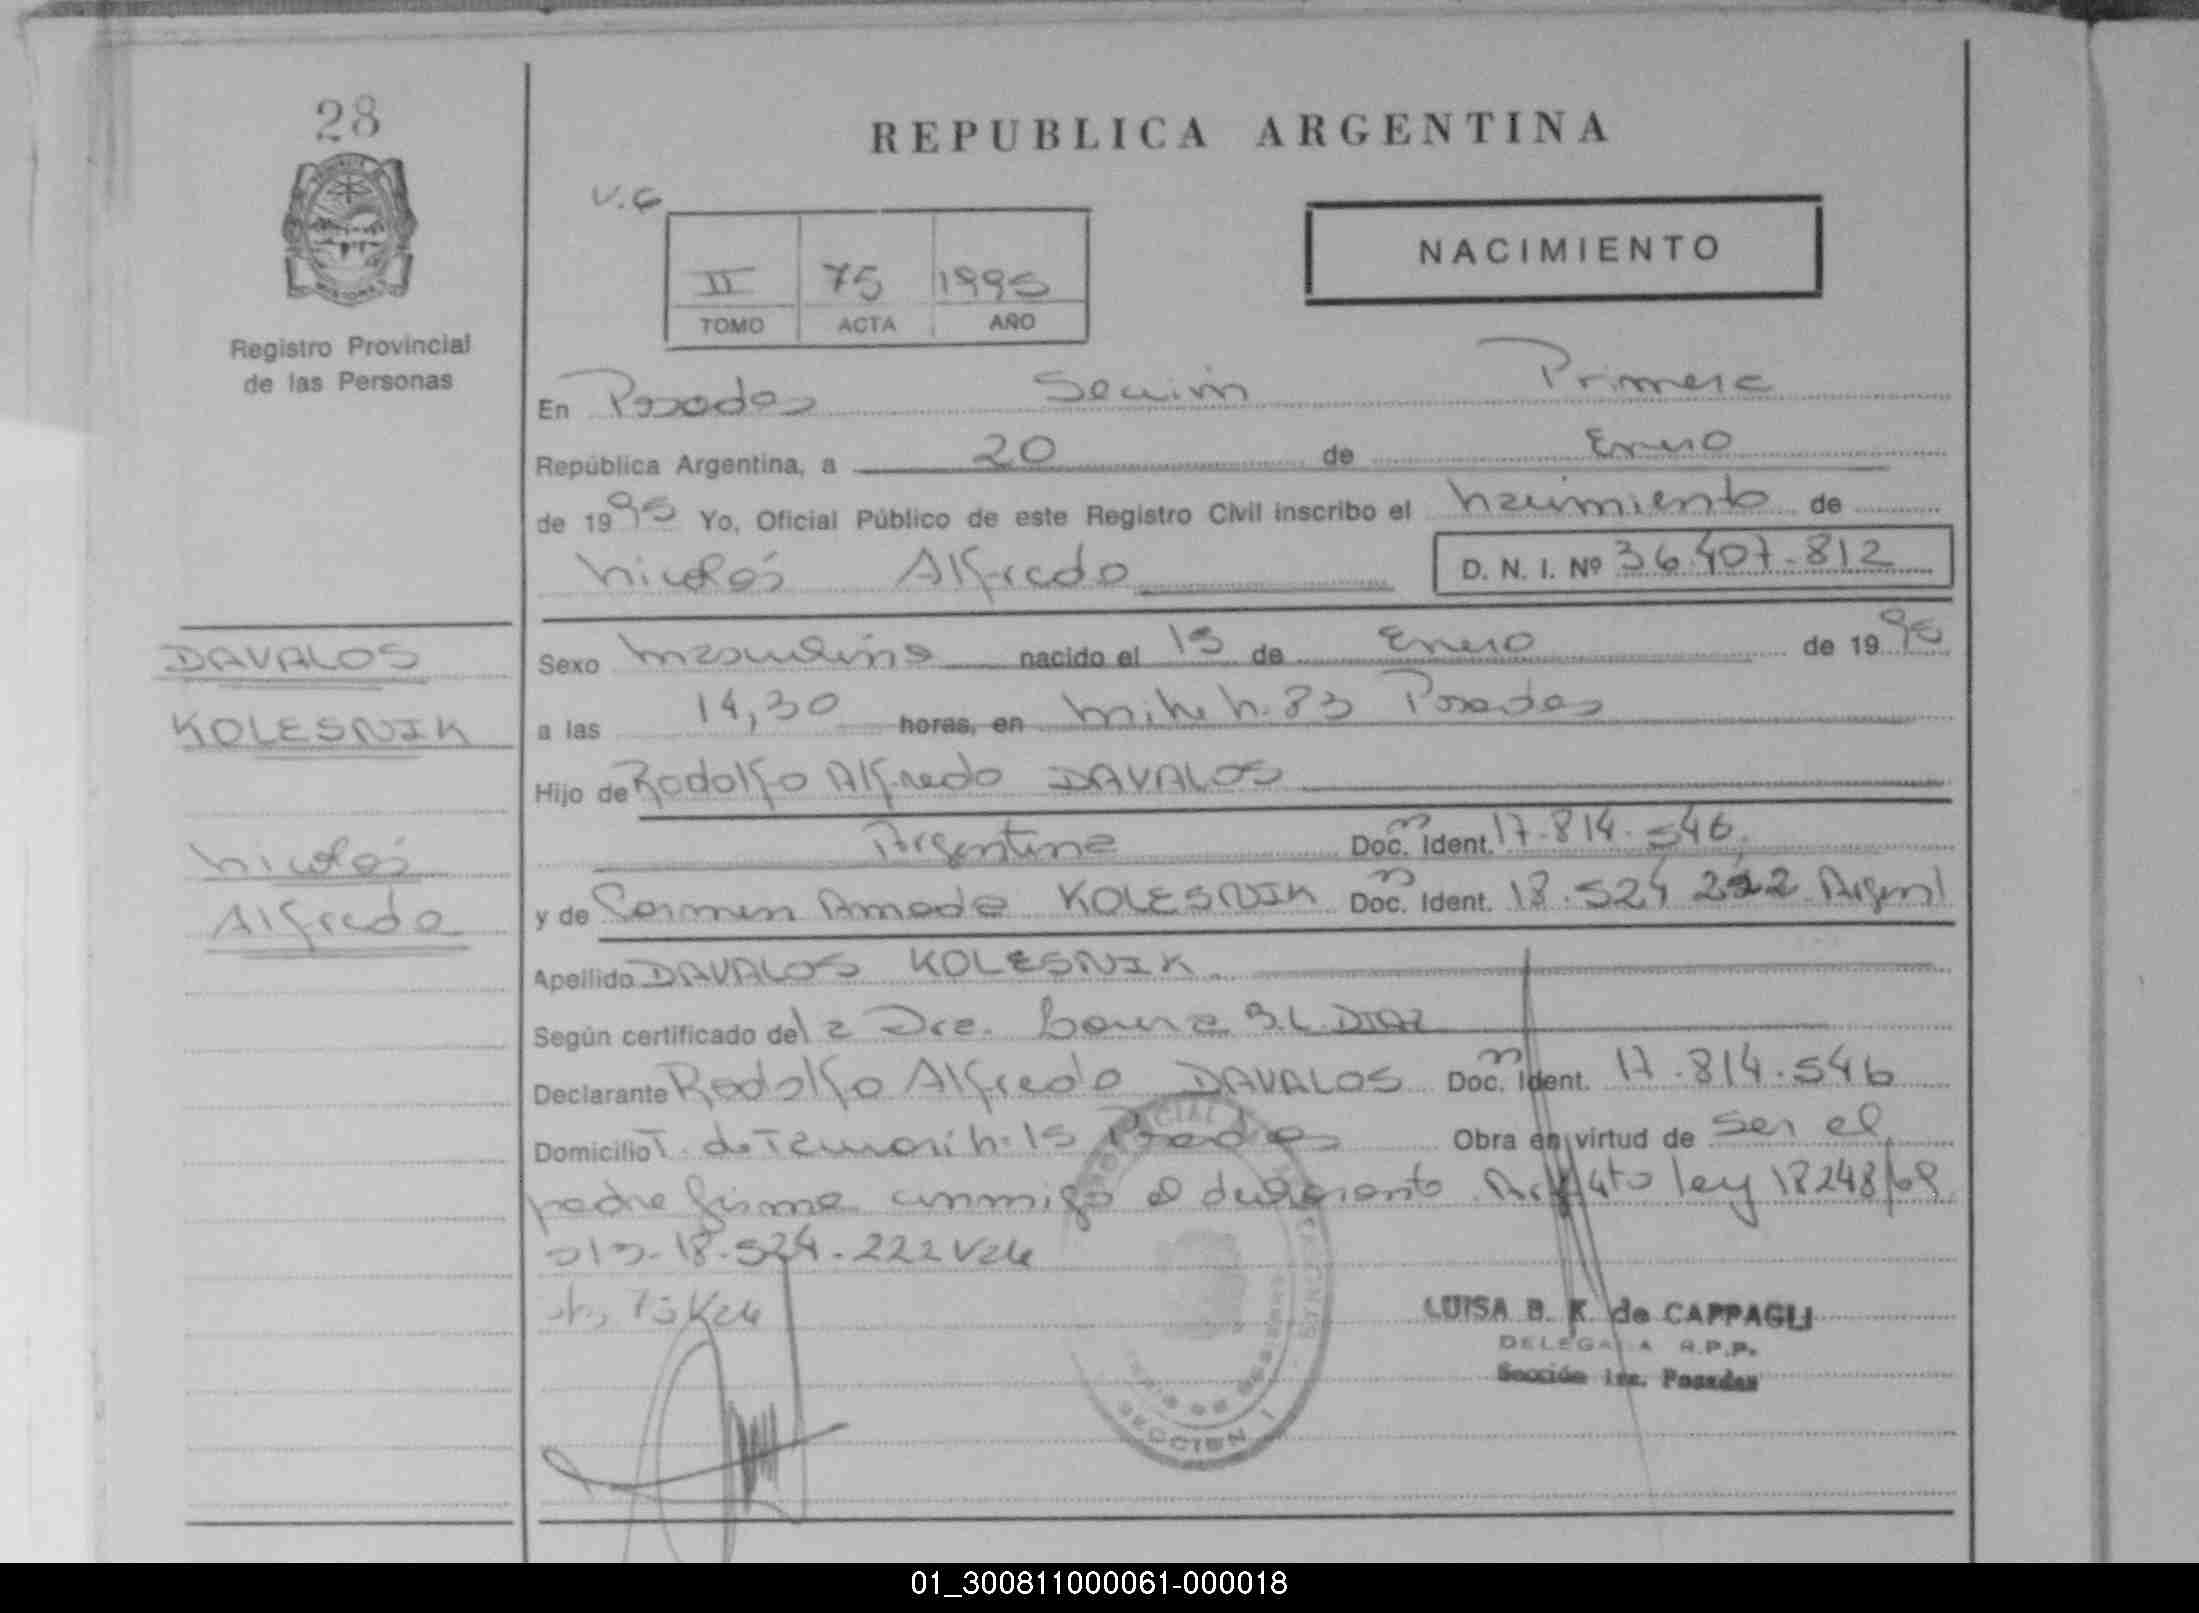 28
REPUBLICA ARGENTINA
V.C
NACIMIENTO
II 75 1995
TOMO ACTA AÑO
Registro Provincial
de las Personas
En Posadas Sección Primera
República Argentina, a 20 de Enero
de 1995 Yo, Oficial Público de este Registro Civil inscribo el nacimiento de
Nicolás Alfredo D. N. I. Nº 36.407.812
DAVALOS
KOLESNIK
Nicolás
Alfredo
Sexo masculino nacido el 15 de Enero de 1995
a las 14,30 horas, en Posadas
Hijo de Rodolfo Alfredo DAVALOS
Argentina Doc. Ident. 17.814.546
y de Carmen Amada KOLESNIK Doc. Ident. 18.524.222 Argent
Apellido DAVALOS KOLESNIK
Según certificado de la Dra. Laura B.L. DIAZ
Declarante Rodolfo Alfredo DAVALOS Doc. Ident. 17.814.546
Domicilio T. de Tacuarí n: 15 Posadas Obra en virtud de ser el
padre firma conmigo el declarante. Art 4to ley 18248/69
s/r. 18.524.222 Vale
75 Vale
LUISA B. K. de CAPPAGLI
DELEGADA R.P.P.
Sección 1ra. Posadas
SECCION 1
01_300811000061-000018